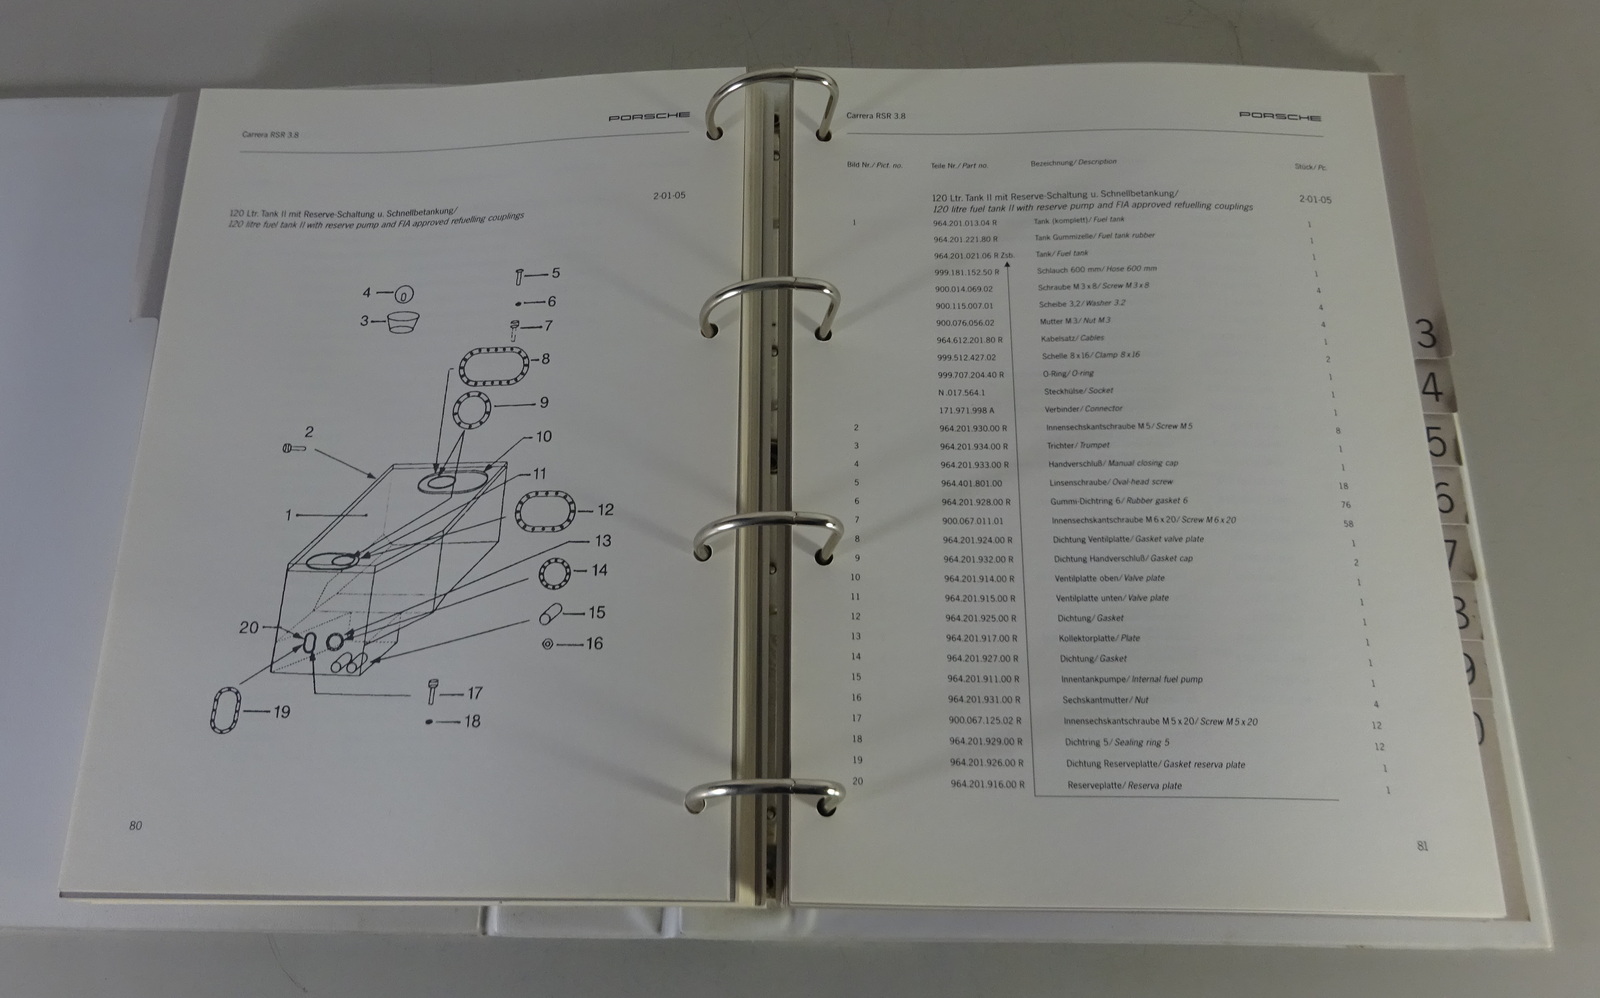 Carrera RSR 3.8
PORSCHE
2-01-05
120 Ltr. Tank II mit Reserve-Schaltung u. Schnellbetankung/
120 litre fuel tank II with reserve pump and FIA approved refuelling couplings
5
4
6
3
7
8
9
2
10
11
1
12
13
14
15
20
16
17
19
18
80
Carrera RSR 3.8
PORSCHE
Bild Nr./Pict. no. Teile Nr./Part no. Bezeichnung/Description Stück/Pc.
120 Ltr. Tank II mit Reserve-Schaltung u. Schnellbetankung/ 2-01-05
120 litre fuel tank II with reserve pump and FIA approved refuelling couplings
1 964.201.013.04 R Tank (komplett)/Fuel tank 1
964.201.221.80 R Tank Gummizelle/Fuel tank rubber 1
964.201.021.06 R Zsb. Tank/Fuel tank 1
999.181.152.50 R Schlauch 600 mm/Hose 600 mm 1
900.014.069.02 Schraube M 3 x 8/Screw M 3 x 8 4
900.115.007.01 Scheibe 3,2/Washer 3.2 4
900.076.056.02 Mutter M 3/Nut M 3 4
964.612.201.80 R Kabelsatz/Cables 1
999.512.427.02 Schelle 8 x 16/Clamp 8 x 16 2
999.707.204.40 R O-Ring/O-ring 1
N.017.564.1 Steckhülse/Socket 1
171.971.998 A Verbinder/Connector 1
2 964.201.930.00 R Innensechskantschraube M 5/Screw M 5 8
3 964.201.934.00 R Trichter/Trumpet 1
4 964.201.933.00 R Handverschluß/Manual closing cap 1
5 964.401.801.00 Linsenschraube/Oval-head screw 18
6 964.201.928.00 R Gummi-Dichtring 6/Rubber gasket 6 76
7 900.067.011.01 Innensechskantschraube M 6 x 20/Screw M 6 x 20 58
8 964.201.924.00 R Dichtung Ventilplatte/Gasket valve plate 1
9 964.201.932.00 R Dichtung Handverschluß/Gasket cap 2
10 964.201.914.00 R Ventilplatte oben/Valve plate 1
11 964.201.915.00 R Ventilplatte unten/Valve plate 1
12 964.201.925.00 R Dichtung/Gasket 1
13 964.201.917.00 R Kollektorplatte/Plate 1
14 964.201.927.00 R Dichtung/Gasket 1
15 964.201.911.00 R Innentankpumpe/Internal fuel pump 1
16 964.201.931.00 R Sechskantmutter/Nut 4
17 900.067.125.02 R Innensechskantschraube M 5 x 20/Screw M 5 x 20 12
18 964.201.929.00 R Dichtring 5/Sealing ring 5 12
19 964.201.926.00 R Dichtung Reserveplatte/Gasket reserva plate 1
20 964.201.916.00 R Reserveplatte/Reserva plate 1
81
3
4
5
6
7
8
9
0